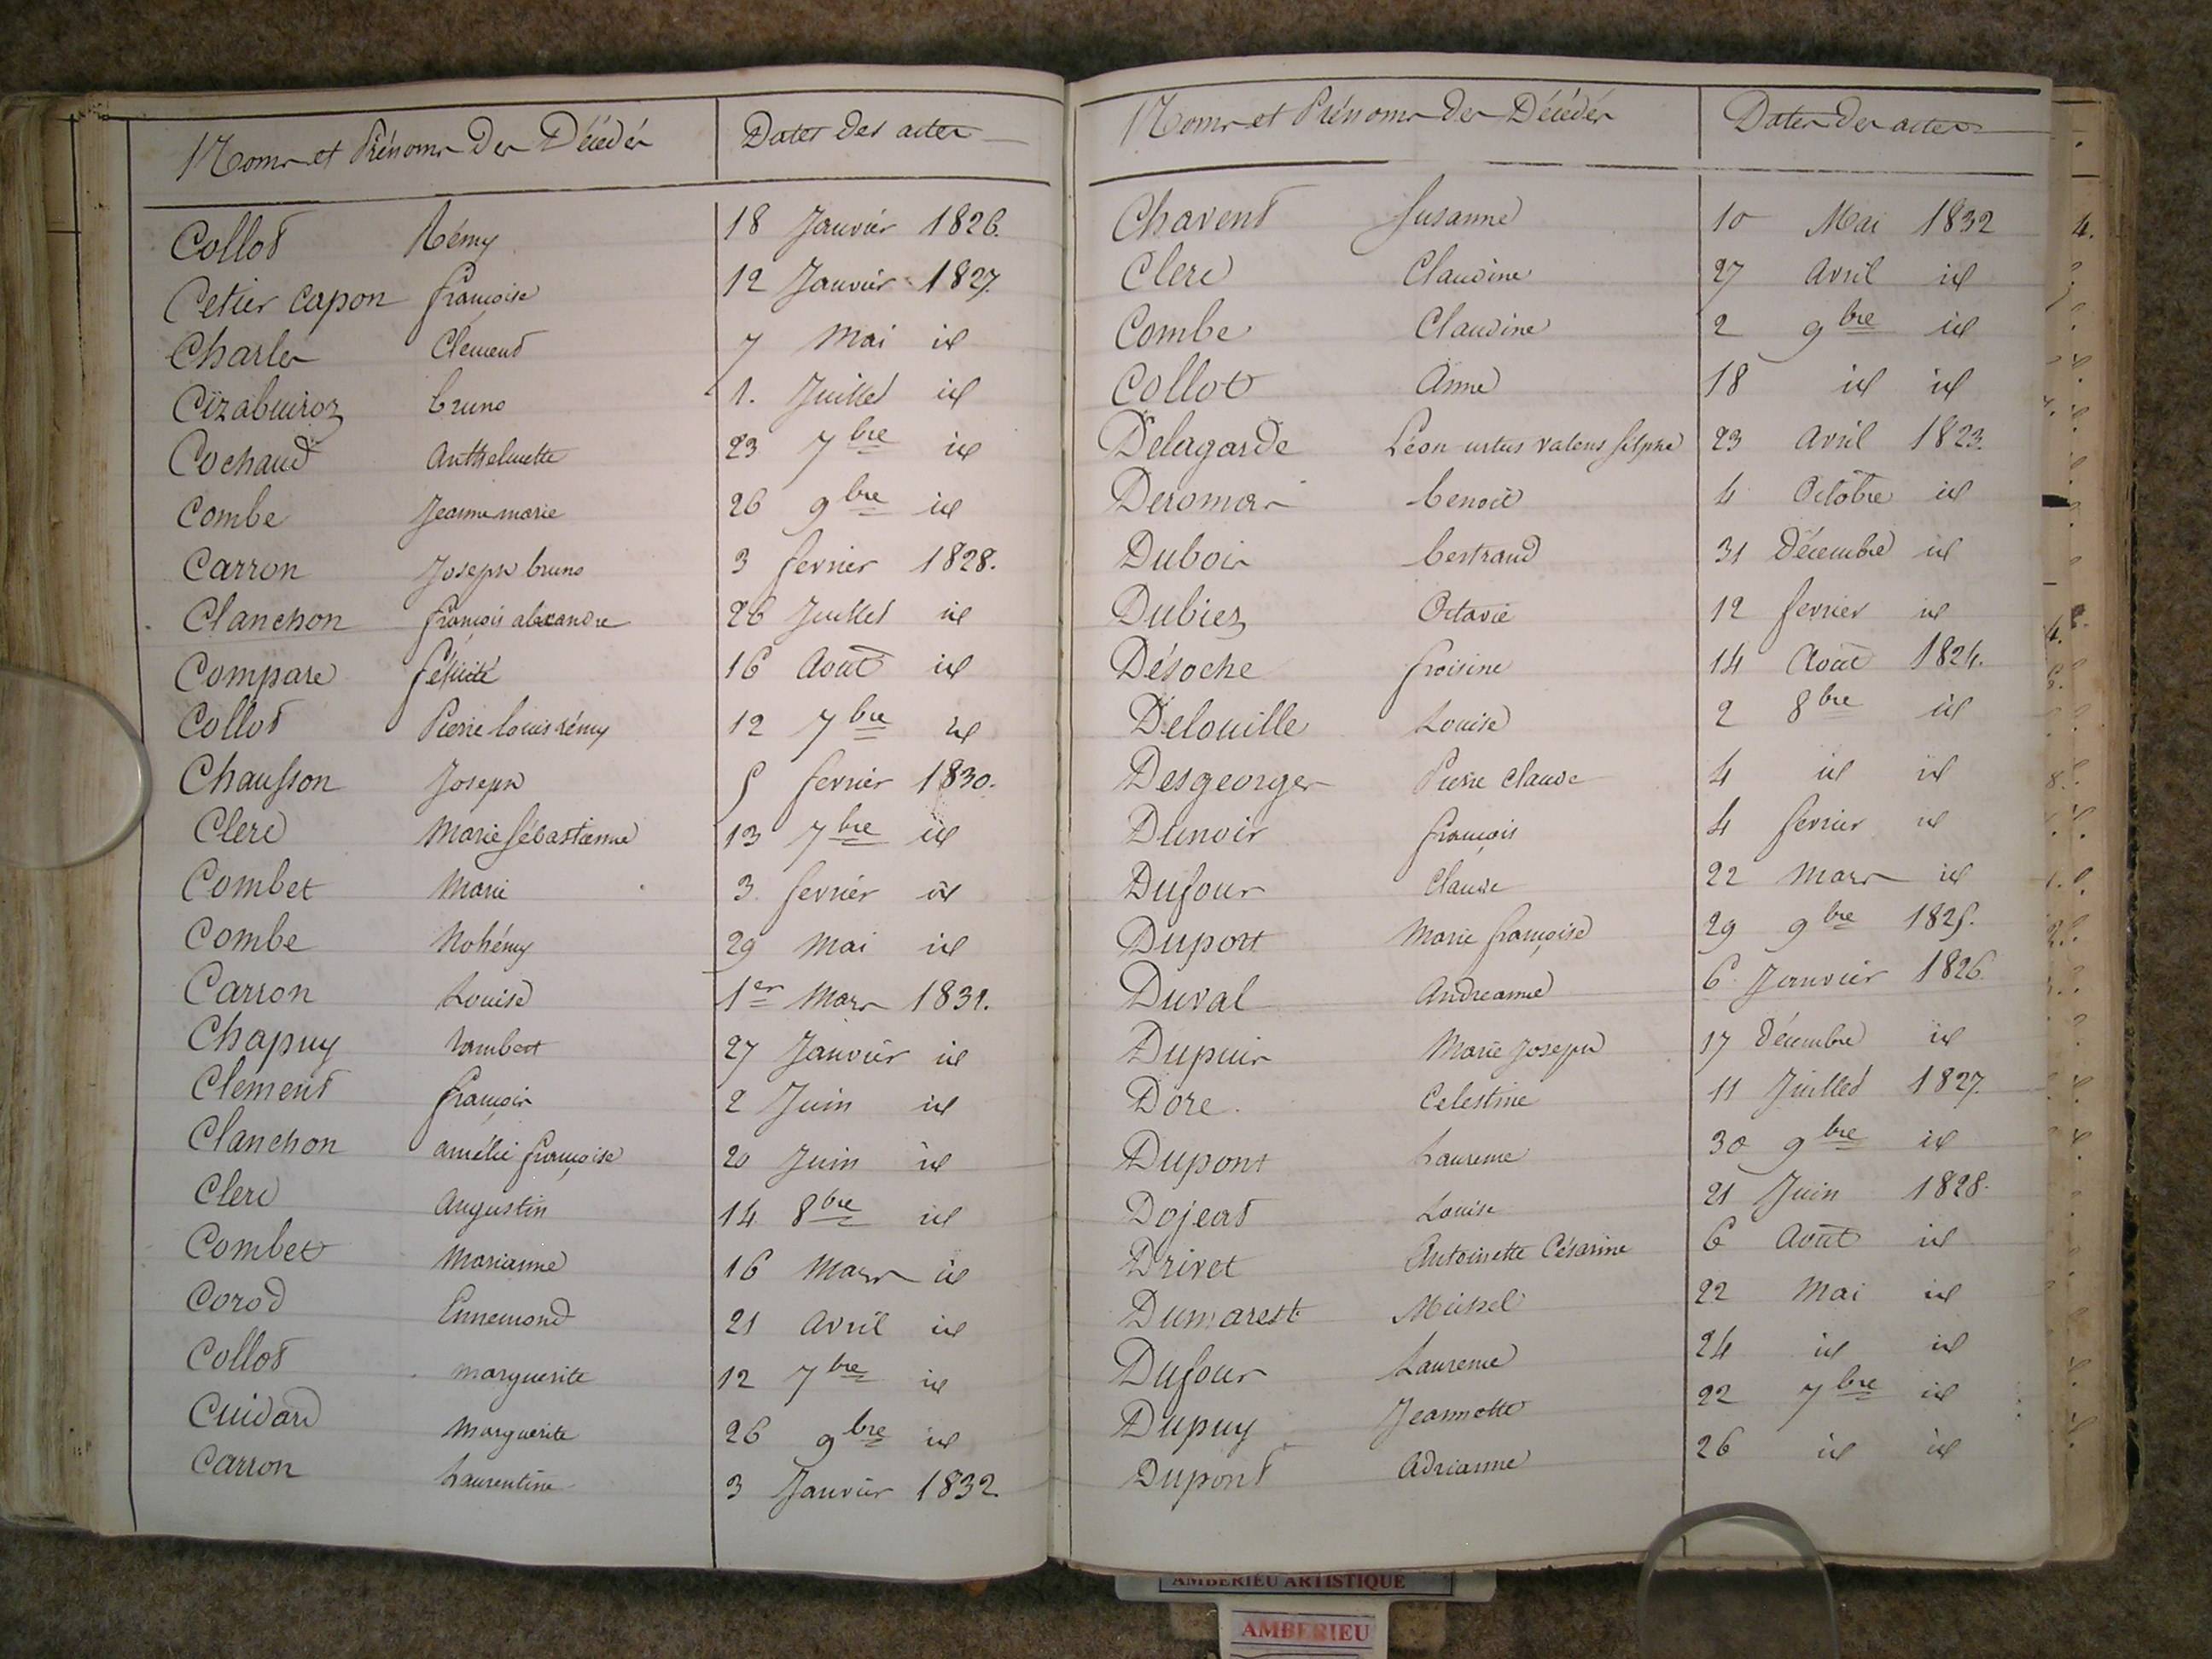 Noms et Prénoms des Décédés Dates des actes
Collot Rémy 18 Janvier 1826.
Cetier Capon françoise 12 Janvier 1827.
Charles Clément 7 Mai id
Cizabuiroz bruno 1. Juillet id
Cochaud Anthelmette 23 7bre id
Combe Jeanne marie 26 9bre id
Carron Joseph bruno 3 fevrier 1828.
Clanchon françois alexandre 26 Juillet id
Compare félicité 16 Août id
Collot Pierre Louis rémy 12 7bre id
Chausson Joseph 5 fevrier 1830.
Clerc Marie Sébastienne 13 7bre id
Combet Marie 3 fevrier id
Combe Nohémy 29 Mai id
Carron Louise 1er Mars 1831.
Chapuy Lambert 27 Janvier id
Clement françois 2 Juin id
Clanchon amélie françoise 20 Juin id
Clerc Augustin 14 8bre id
Combet Marianne 16 Mars id
Corod Ennemond 21 Avril id
Collot Marguerite 12 7bre id
Cuidard Marguerite 26 9bre id
Carron Laurentine 3 Janvier 1832.
Noms et Prénoms des Décédés Dates des actes
Chavent Susanne 10 Mai 1832
Clerc Claudine 27 Avril id
Combe Claudine 2 9bre id
Collot Anne 18 id id
Delagarde Léon valens 23 Avril 1823.
Deromas benoit 4 Octobre id
Dubois bertrand 31 Décembre id
Dubiez Octavie 12 fevrier id
Désoche froisine 14 Août 1824.
Delouille Louise 2 8bre id
Desgeorges Pierre Claude 4 id id
Dunoir françois 4 fevrier id
Dufour Claude 22 Mars id
Duport Marie françoise 29 9bre 1825.
Duval Andreanne 6 Janvier 1826.
Dupuis Marie Joseph 17 Décembre id
Dore Celestine 11 Juillet 1827.
Dupont Laurence 30 9bre id
Dojeat Louise 21 Juin 1828.
Drivet Antoinette Césarine 6 Août id
Dumarest Michel 22 Mai id
Dufour Laurence 24 id id
Dupuy Jeannette 22 7bre id
Dupont Adrianne 26 id id
AMBERIEU ARTISTIQUE
AMBERIEU